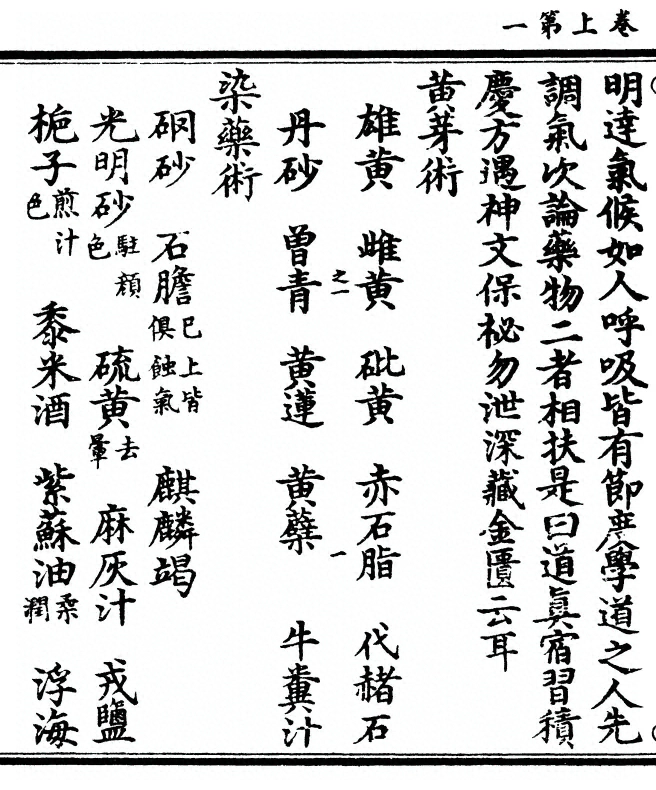 卷上第一
明達氣候如人呼吸皆有節度學道之人先
調氣次論藥物二者相扶是曰道眞宿習積
慶方遇神文保祕勿泄深藏金匱云耳
黄芽術
雄黄 雌黄 砒黄 赤石脂 代赭石
丹砂 曽青之一 黄蓮 黄蘗一 牛糞汁
染藥術
硇砂 石膽已上皆俱蝕氣 麒麟竭
光明砂駐顔色 硫黄去暈 麻灰汁 戎鹽
梔子煎汁色 黍米酒 紫蘇油柔潤 浮海